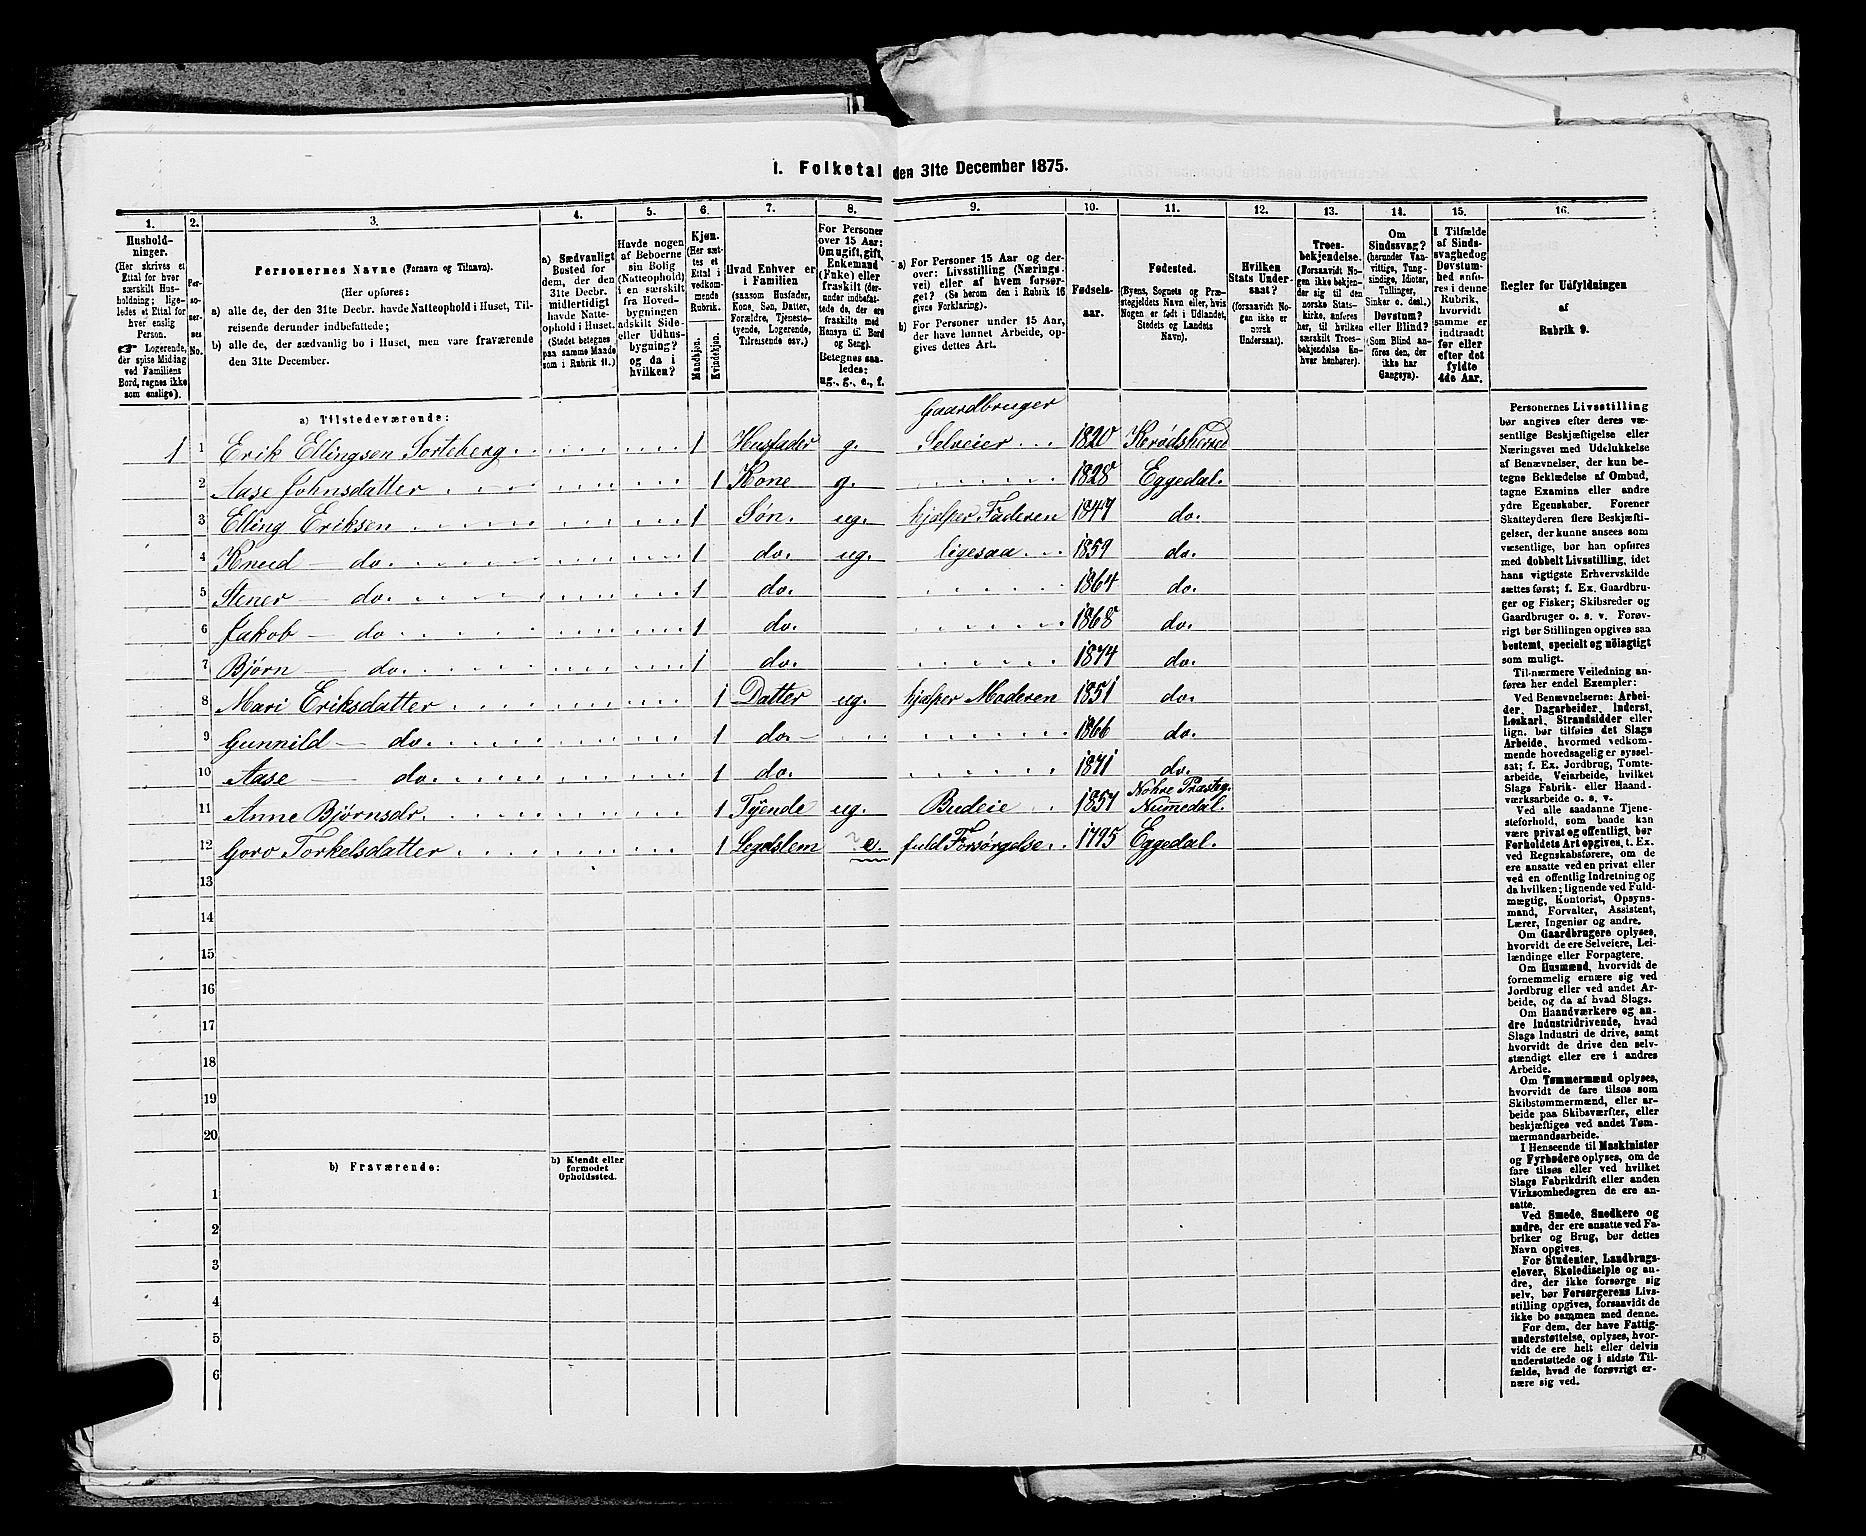 1. Folketal den 31te December 1875.
1. 2. 3. 4. 5. 6. 7. 8. 9. 10. 11. 12. 13. 14. 15. 16.
Hushold-
ninger.
(Her skrives et
Ettal for hver
særskilt Hus-
holdning; lige-
ledes et Ettal for
hver enslig
Person.
☞ Logerende,
der spise Middag
ved Familiens
Bord, regnes ikke
som enslige).
Per-
so-
ner-
nes
No.
Personernes Navne (Fornavn og Tilnavn).
(Her opføres:
a) alle de, der den 31te Decbr. havde Natteophold i Huset, Til-
reisende derunder indbefattede;
b) alle de, der sædvanlig bo i Huset, men vare fraværende
den 31te December.
a) Sædvanligt
Bosted for
dem, der den
31te Decbr.
midlertidigt
havde Natte-
ophold i Huset.
(Stedet betegnes
paa samme Maade
som i Rubrik 11.)
Havde nogen
af Beboerne
sin Bolig
(Natteophold)
i en særskilt
fra Hoved-
bygningen
adskilt Side-
eller Udhus-
bygning?
og da i
hvilken?
Kjøn.
(Her sæt-
tes et
Ettal i
vedkom-
mende
Rubrik.
Mandkjøn.
Kvindekjøn.
Hvad Enhver er
i Familien
(saasom Husfader,
Kone, Søn, Datter,
Forældre, Tjeneste-
tyende, Logerende,
Tilreisende osv.)
For Personer
over 15 Aar:
Om ugift, gift,
Enkemand
(Enke) eller
fraskilt (der-
under indbefat-
tede de, der ere
fraskilte med
Hensyn til Bord
og Seng).
Betegnes saa-
ledes:
ug., g., e., f.
a) For Personer 15 Aar og der-
over: Livsstilling (Nærings-
vei) eller af hvem forsør-
get? (Se herom den i Rubrik 16
givne Forklaring).
b) For Personer under 15 Aar,
der have lønnet Arbeide, op-
gives dettes Art.
Fødsels-
aar.
Fødested.
(Byens, Sognets og Præ-
stegjeldets Navn eller, hvis
Nogen er født i Udlandet,
Stedets og Landets
Navn).
Hvilken
Stats Under-
saat?
(forsaavidt No-
gen ikke er
norsk
Undersaat).
Troes-
bekjendelse.
(Forsaavidt No-
gen ikke bekjen-
der sig til den
norske Stats-
kirke, anføres
her, til hvilken
særskilt Troes-
bekjendelse En-
hver henhører).
Om
Sindssvag?
(herunder Van-
vittige, Tung-
sindige, Idioter,
Tullinger,
Sinker o. desl.)
Døvstum?
eller Blind?
(Som Blind an-
føres den, der
ikke har
Gangsyn).
I Tilfælde
af Sinds-
svaghed og
Døvstum-
hed anfø-
res i denne
Rubrik,
hvorvidt
samme er
indtraadt
før eller
efter det
fyldte
4de Aar.
Regler for Udfyldningen
af
Rubrik 9.
a) Tilstedeværende:
Gaardbruger
1 1 Erik Ellingsen Sorteberg 1 Husfader g. Selveier 1820 Kerødsherred
2 Aase Johnsdatter 1 Kone g. 1828 Eggedal.
3 Elling Eriksen 1 Søn. ug. hjælper Faderen 1847 do.
4 Knud — do. 1 do. ug. ligesaa 1859 do.
5 Stener — do. 1 do. 1864 do.
6 Jakob — do 1 do. 1868 do.
7 Bjørn — do. 1 do. 1874 do.
8 Mari Eriksdatter 1 Datter ug. hjælper Moderen 1851 do.
9 Gunnild — do. 1 do. 1866 do.
10 Aase — do. 1 do. 1871 do.
Nohre Præstg.
11 Anne Bjørnsdr. 1 Tyende ug. Budeie 1857 Numedal.
12 Goro Torkelsdatter 1 Legdslem e. fuld Forsørgelse 1795 Eggedal.
13
14
15
16
17
18
19
20
b) Fraværende:
b) Kjendt eller
formodet
Opholdssted.
1
2
3
4
5
6
Personernes Livsstilling
bør angives efter deres væ-
sentlige Beskjæftigelse eller
Næringsvei med Udelukkelse
af Benævnelser, der kun be-
tegne Beklædelse af Ombud,
tagne Examina eller andre
ydre Egenskaber. Forener
Skatteyderen flere Beskjæfti-
gelser, der kunne ansees som
væsentlige, bør han opføres
med dobbelt Livsstilling, idet
hans vigtigste Erhvervskilde
sættes først; f. Ex. Gaardbru-
ger og Fisker; Skibsreder og
Gaardbruger o. s. v. Forøv-
rigt bør Stillingen opgives saa
bestemt, specielt og nøiagtigt
som muligt.
Til nærmere Veiledning an-
føres her endel Exempler:
Ved Benævnelserne: Arbei-
der, Dagarbeider, Inderst,
Løskarl, Strandsidder eller
lign. bør tilføies det Slags
Arbeide, hvormed vedkom-
mende hovedsagelig er syssel-
sat; f. Ex. Jordbrug, Tomte-
arbeide, Veiarbeide, hvilket
Slags Fabrik- eller Haand-
værksarbeide o. s. v.
Ved alle saadanne Tjene-
steforhold, som baade kan
være privat og offentligt, bør
Forholdets Art opgives, t. Ex.
ved Regnskabsførere, om de
ere ansatte ved en privat eller
ved en offentlig Indretning og
da hvilken; lignende ved Fuld-
mægtig, Kontorist, Opsyns-
mand, Forvalter, Assistent,
Lærer, Ingeniør og andre.
Om Gaardbrugere oplyses,
hvorvidt de ere Selveiere, Lei-
lændinge eller Forpagtere.
Om Husmænd, hvorvidt de
fornemmelig ernære sig ved
Jordbrug eller ved andet Ar-
beide, og da af hvad Slags.
Om Haandværkere og an-
dre Industridrivende, hvad
Slags Industri de drive, samt
hvorvidt de drive den selv-
stændigt eller ere i andres
Arbeide.
Om Tømmermænd oplyses,
hvorvidt de fare tilsøs som
Skibstømmermænd, eller ar-
beide paa Skibsværfter, eller
beskjæftiges ved andet Tøm-
mermandsarbeide.
I Henseende til Maskinister
og Fyrbødere oplyses, om de
fare tilsøs eller ved hvilket
Slags Fabrikdrift eller anden
Virksomhedsgren de ere an-
satte.
Ved Smede, Snedkere og
andre, der ere ansatte ved Fa-
briker og Brug, bør dettes
Navn opgives.
For Studenter, Landbrugs-
elever, Skoledisciple og an-
dre, der ikke forsørge sig
selv, bør Forsørgerens Livs-
stilling opgives, forsaavidt de
ikke bo sammen med denne.
For dem, der have Fattig-
understøttelse, oplyses, hvor-
vidt de ere helt eller delvis
understøttede og i sidste Til-
fælde, hvad de forøvrigt er-
nære sig ved.